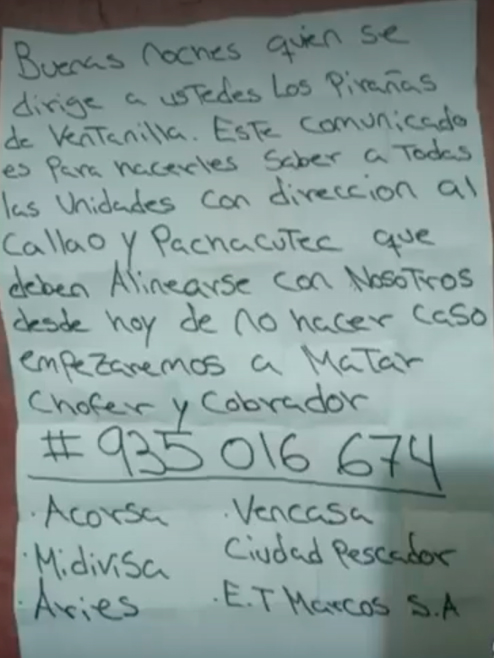 Buenas noches quien se
dirige a ustedes Los Pirañas
de Ventanilla. Este comunicado
es para hacerles saber a Todas
las Unidades con direccion al
Callao y Pachacutec que
deben Alinearse con NosoTros
desde hoy de no hacer caso
empezaremos a MaTar
Chofer y Cobrador
# 935 016 674
· Acorsa · Vencasa
· Midivisa Ciudad Pescador
· Aries · E.T Marcos S.A